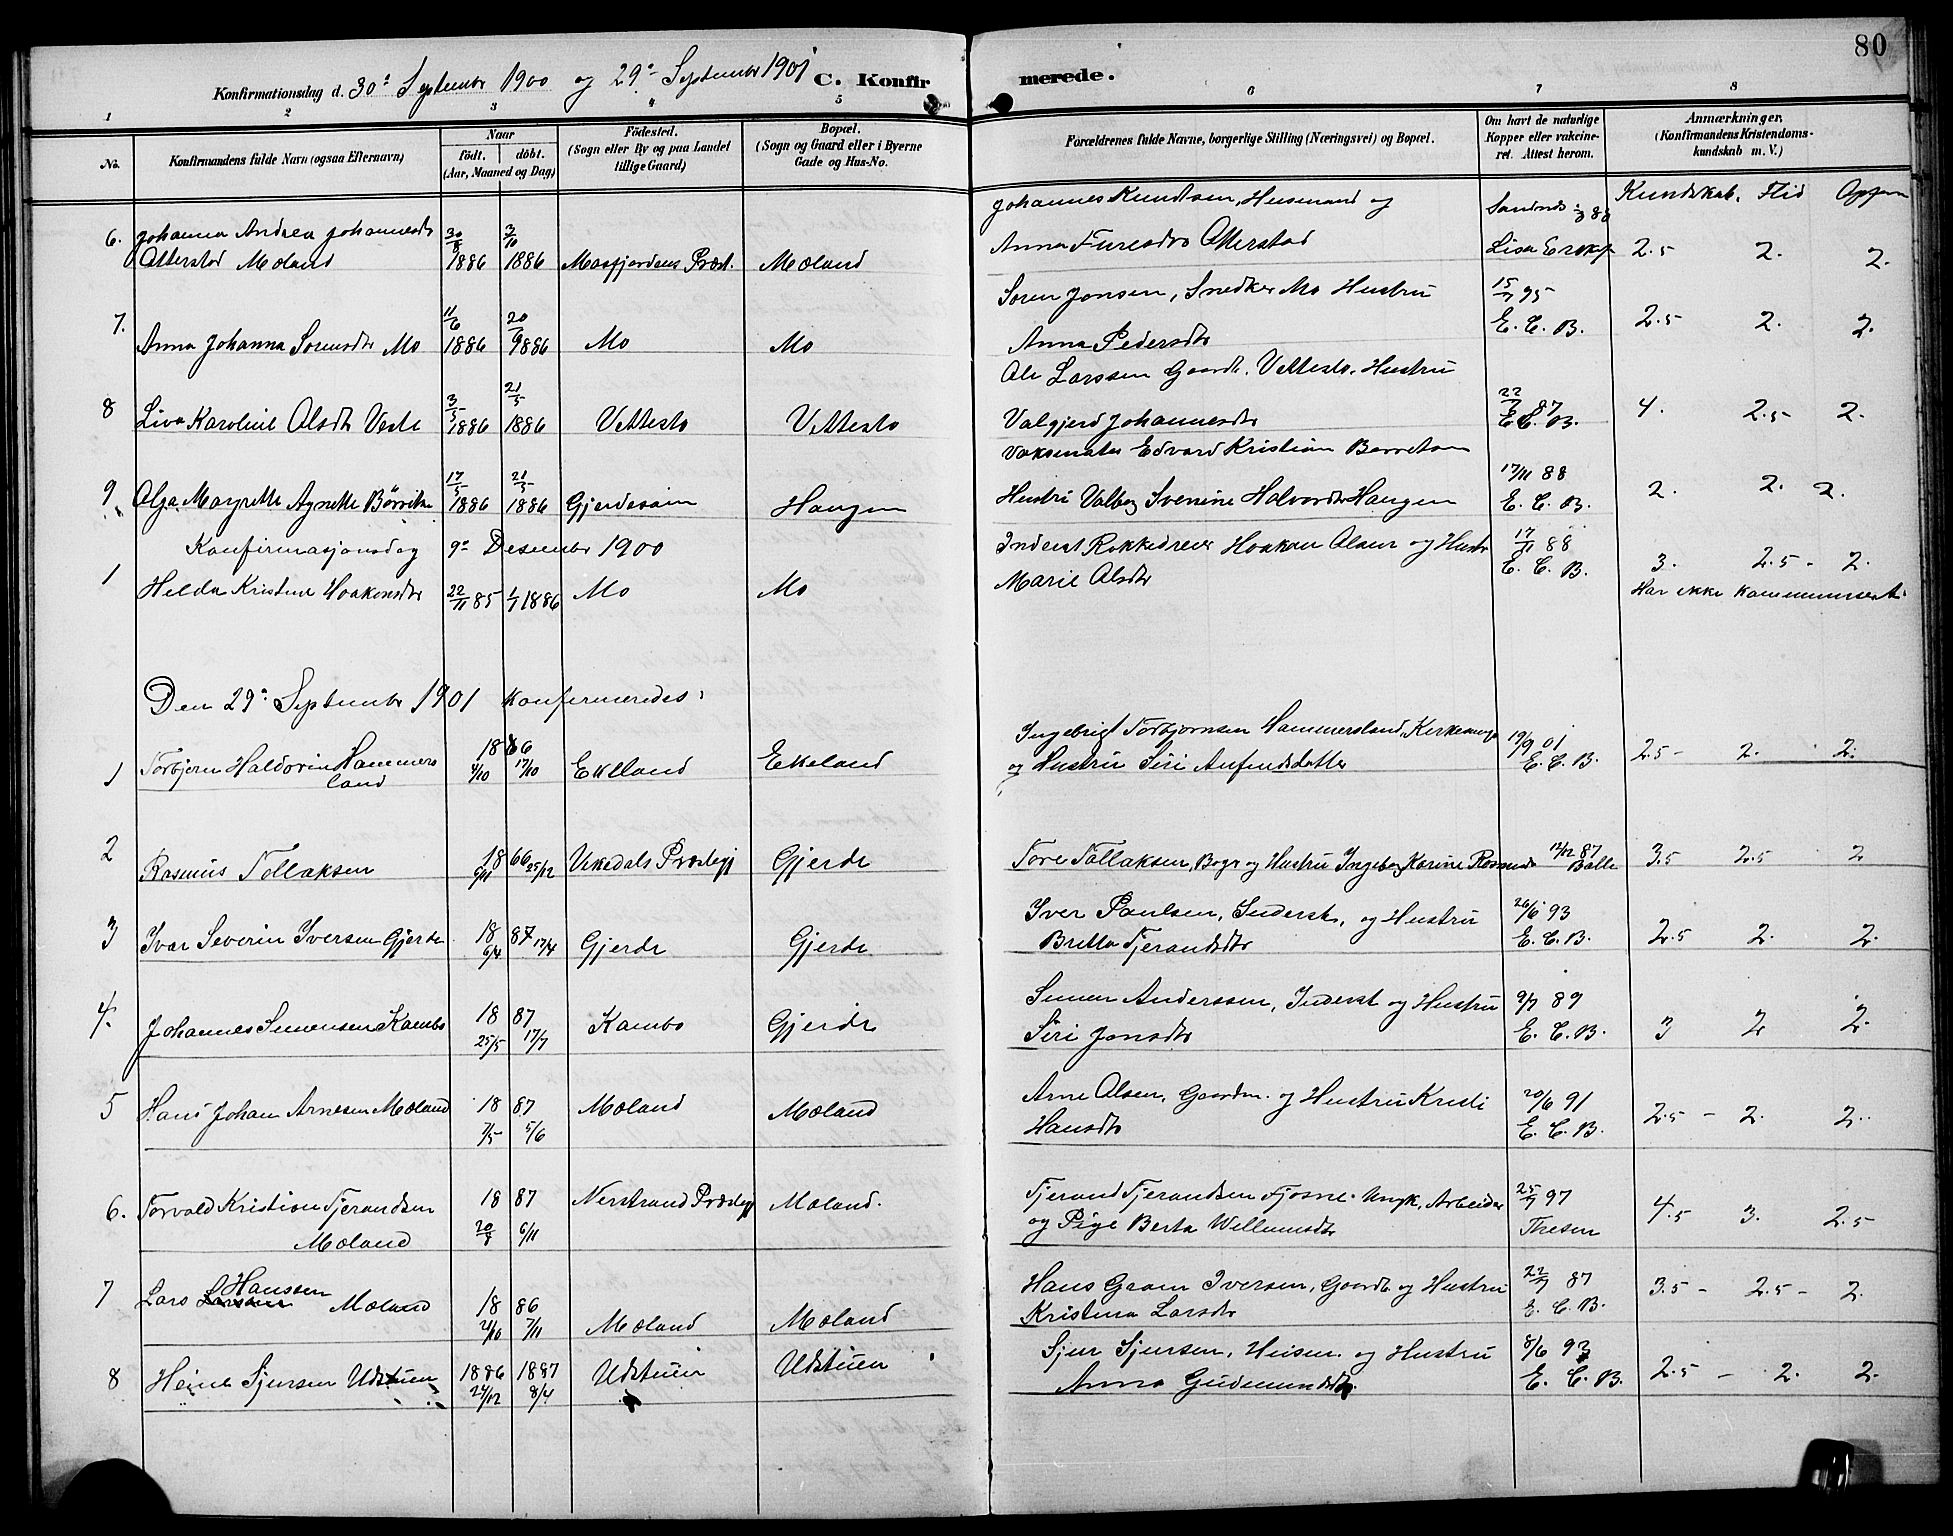 80
Konfirmationsdag d. 30te September 1900 og 29de September 1901 C. Konfirmerede.
1 2 3 4 5 6 7 8
No.
Konfirmandens fulde Navn (ogsaa Efternavn)
Naar
født. døbt.
(Aar, Maaned og Dag)
Fødested.
(Sogn eller By og paa Landet
tillige Gaard)
Bopæl.
(Sogn og Gaard eller i Byerne
Gade og Hus-No.
Forældrenes fulde Navne, borgerlige Stilling (Næringsvei) og Bopæl.
Om havt de naturlige
Kopper eller vakcine-
ret. Attest herom.
Anmærkninger.
(Konfirmandens Kristendoms-
kundskab m. V.)
Kundskab. Flid
6. Johanna Andrea Johannesdtr 30/8 3/10 Johannes Knudsen, Husmand og
Atterstod Moland 1886 1886 Masfjordens Præst. Moland Anna Atterstod 2.5 2. 2.
7. 11/6 20/9 Soren Jonsen, Snedker Mo Hustru 15/7 95
Anna Johanna Sorensdtr Mo 1886 1886 Mo Mo Anna Pedersdtr E. C. B. 2.5 2. 2.
Ole Larssen Gaardb. Vettesto. Hustru
3/5 21/5 22/7 87
8 Karoline Olsdtr 1886 1886 Vettesto Vettesto Valgjerd Johannesdtr E. C. B. 4. 2.5 2.
Edvard Kristian
17/5 21/5 17/11 88
9 Olga Margrethe Agnette 1886 1886 Haugen Hustru Valborg Svenine Halvordsdtr Haugen E. C. B. 2. 2. 2.
Konfirmasjonsdag 9de Desember 1900 Haakon Olsen og Hustr 17/11 88
1 Helda Kristine Haakonsdtr 22/11 85 1/1 1886 Mo Mo Marie Olsdtr E. C. B. 3. 2.5 - 2.
Har ikke kommuniseret.
Den 29de September 1901 konfirmeredes:
1 Torbjørn Haldorin Hammers 1866 Ekeland Ekeland Ingebrigt Torbjørnsen Hammersland, 19/9 01 2.5 - 2. 2.
land 4/10 17/10 og Hustru Siri Anfindsdatter E. C. B.
2 Rasmus Tollaksen 1866 6/11 25/12 Gjerde Tore Tollaksen, og Hustru Ingeborg Karine 12/12 87 Balle 3.5 2.5 2
3 Ivar Severin Iversen Gjerde 1887 6/4 17/4 Gjerde Gjerde Iver Paulsen, Inderst, og Hustru 26/6 93
Britta Tjerandsdtr E. C. B. 2.5 2. 2.
4. Johannes Simonsen Kambo 1887 Kambo Gjerde Simen Anderssen, Inderst og Hustru 9/7 89
25/5 17/7 Siri Jonsdtr E. C. B. 3 2 2.
5 Hans Johan Arnesen Moland 1887 Moland Moland Arne Olsen, Gaardm. og Hustru Kristi 20/6 91
7/5 5/6 Hansdtr E. C. B. 2.5 - 2. 2.
6. Torvald Kristian Tjerandsen 1887 Nerstrand Præstegj Moland. Tjerand Tjerandsen Fjosne. Ungk, Arbeider 25/7 97
Moland 20/8 6/11 og Pige Berta Willumsdtr Thesen 4.5 3. 2.5
7 Lars Hanssen Moland 1886 Hans Gram Iversen, Gaardb og Hustru 22/7 87 3.5 - 2.5 - 2.
2/10 7/11 Moland Moland Kristina Larsdtr E. C. B.
8 Heine Sjursen Udstuen 1886 1887 Udstuen Udstuen Sjur Sjursen, og Hustru 8/6 93
29/12 8/4 Anna Gudmundsdtr. E. C. B. 2.5 - 2. 2.